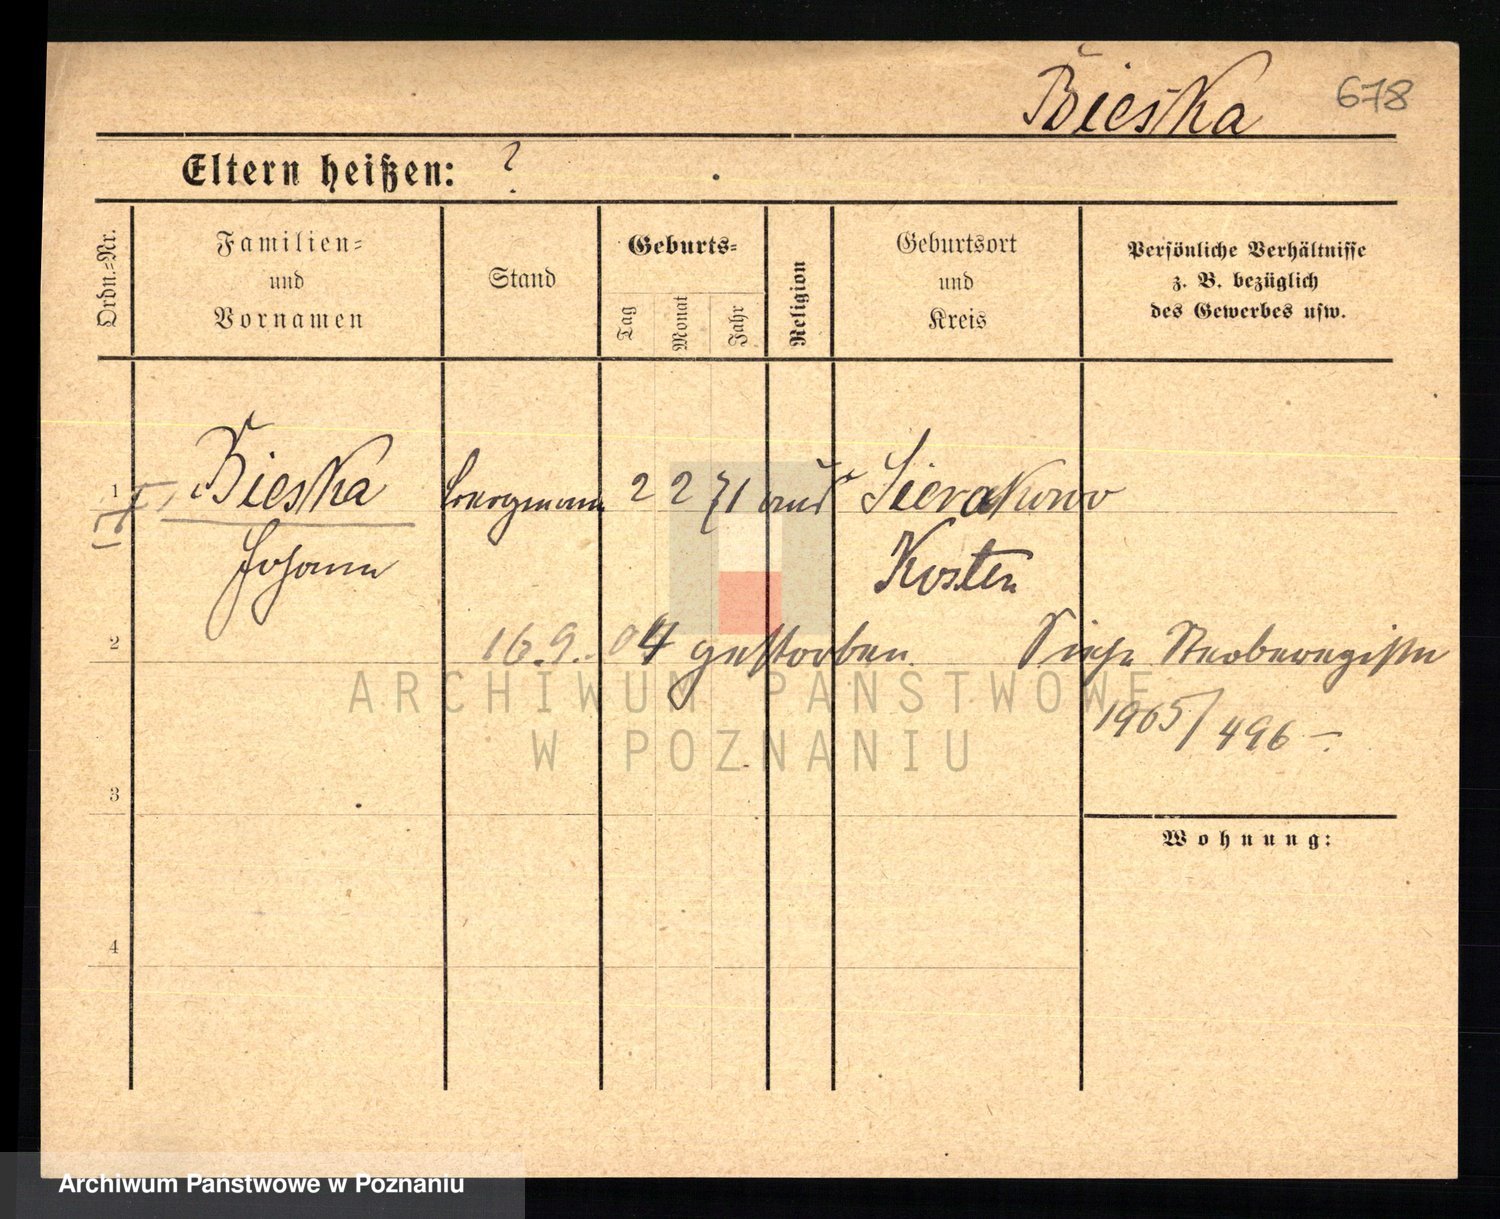 Bieska 678
Eltern heißen: ?
Ordn.-Nr.
Familien-
und
Vornamen
Stand
Geburts-
Tag
Monat
Jahr
Religion
Geburtsort
und
Kreis
Persönliche Verhältnisse
z. B. bezüglich
des Gewerbes usw.
1 Bieska Bergmann 2 2 71 aus Sierakowo
Johann Kosten
2 16.9. 04 gestorben. Siehe Sterberegister
1905/496 –
3
Wohnung:
4
ARCHIWUM PAŃSTWOWE
W POZNANIU
Archiwum Państwowe w Poznaniu